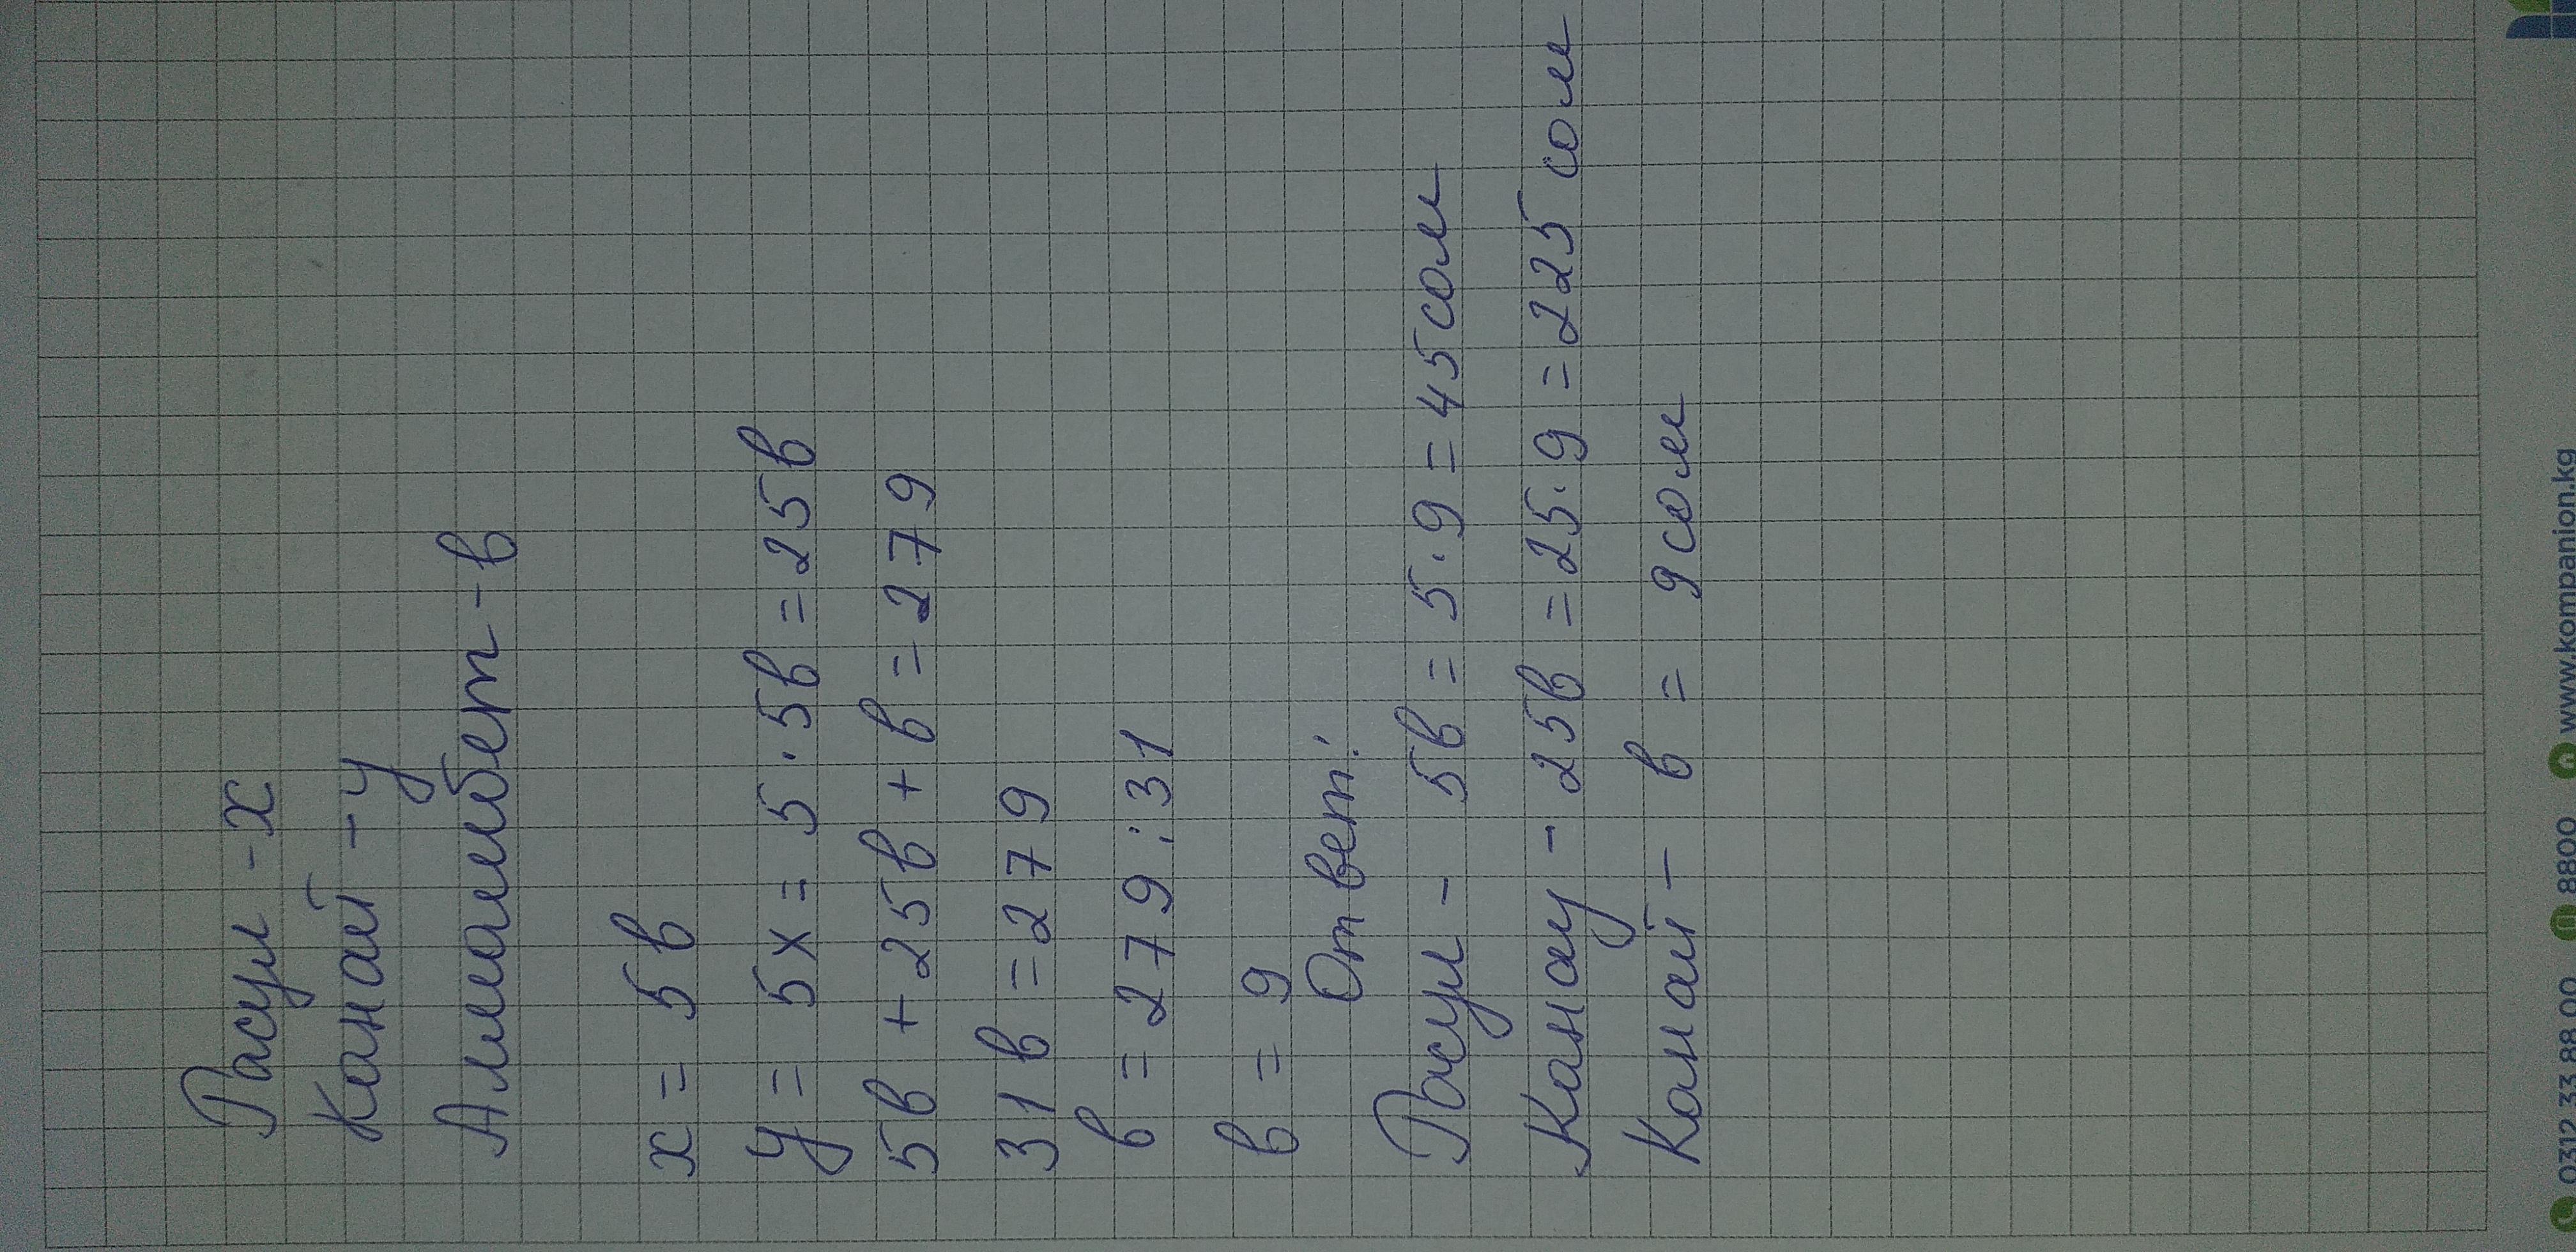 Расул - х
Канай - у
Алмамбет - в
х = 5в
у = 5х = 5 · 5в = 25в
5в + 25в + в = 279
31в = 279
в = 279 : 31
в = 9
Ответ:
Расул - 5в = 5 · 9 = 45 сом
Канау - 25в = 25 · 9 = 225 сом
Канай - в = 9 сом
0312 33 88 00 8800 www.kompanion.kg